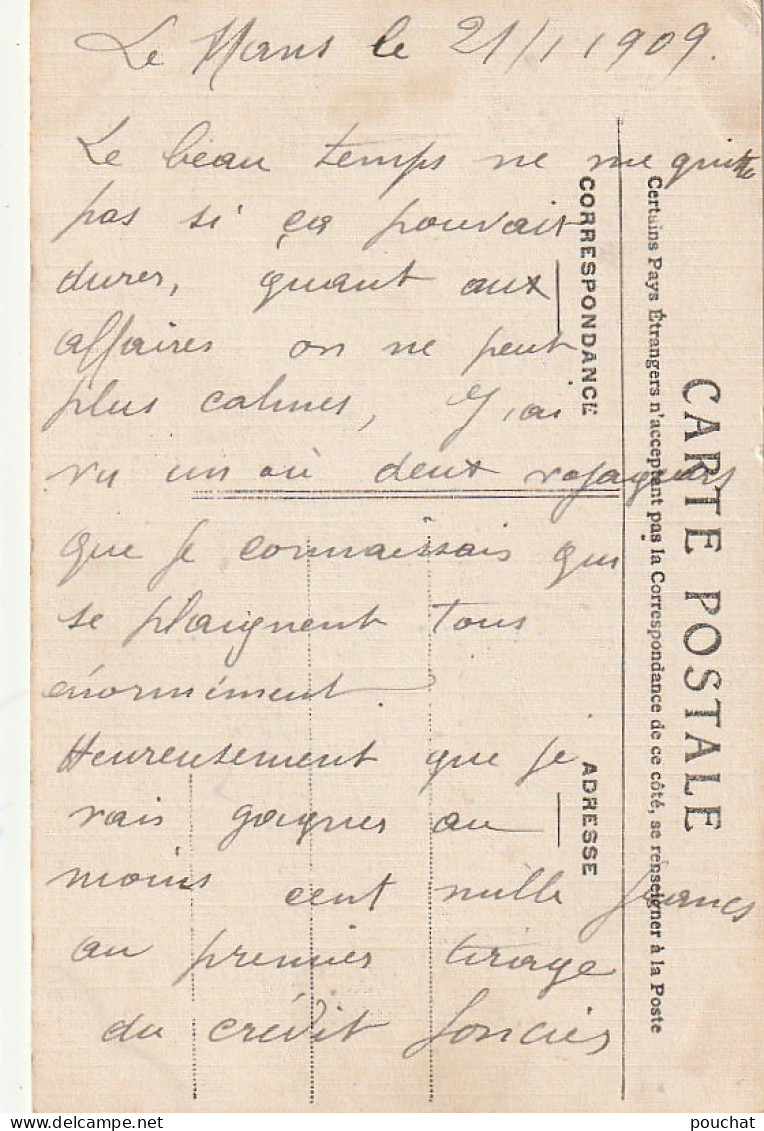 Le Mans le 21/1 1909.
Le beau temps ne me quitte
pas si ça pouvait
durer, quant aux
affaires on ne peut
plus calmes, J'ai
vu un ou deux voyageurs
que je connaissais qui
se plaignent tous
énormément
Heureusement que je
vais gagner au
moins cent mille francs
au premier tirage
du crédit foncier
CARTE POSTALE
Certains Pays Étrangers n'acceptent pas la Correspondance de ce côté, se renseigner à la Poste
CORRESPONDANCE
ADRESSE
pouchat